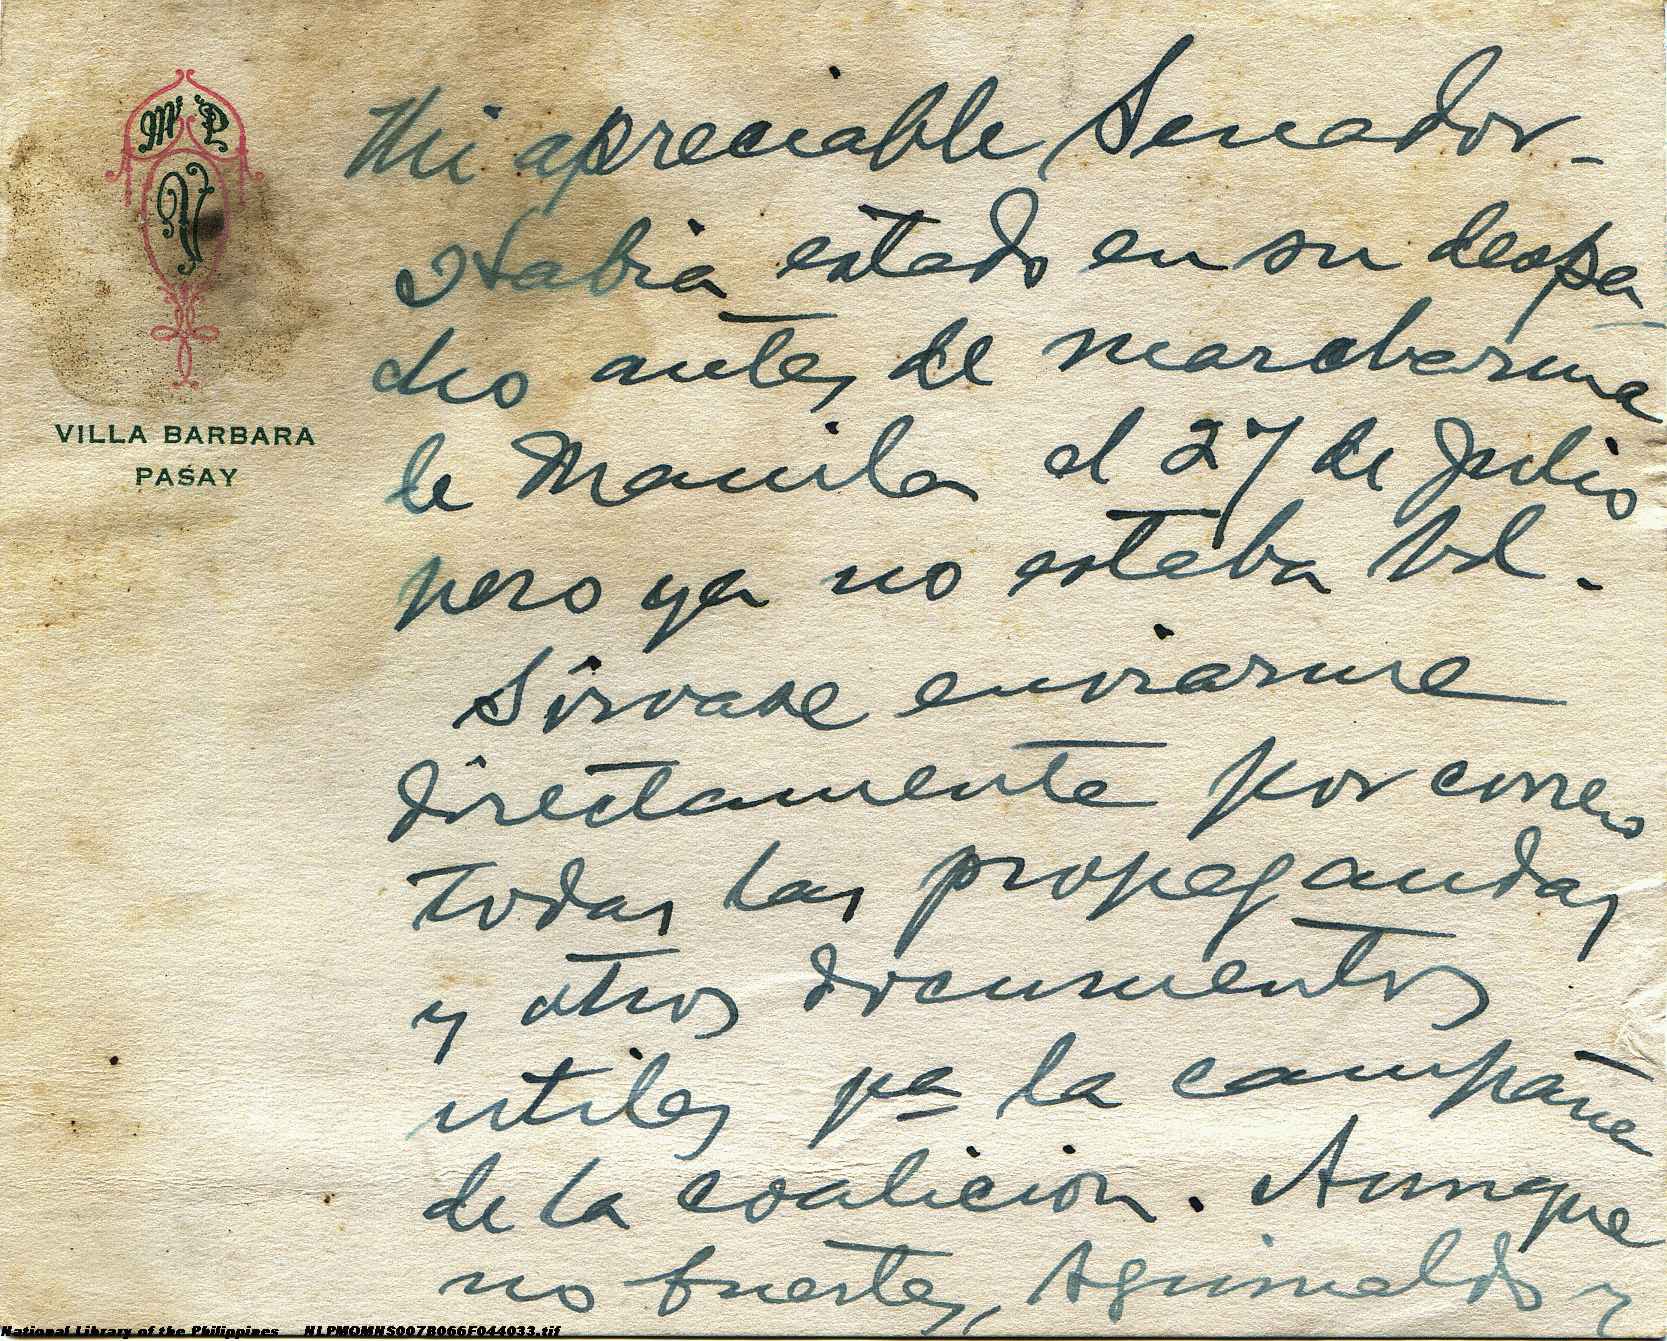 M P
V
VILLA BARBARA
PASAY
Mi apreciable Senador-
Habia estado en su despa
cho antes de marcharme
de Manila el 27 de Julio
pero ya no estaba Vd.
Sírvase enviarme
directamente por correo
todas las propagandas
y otros documentos
utiles pa la campaña
de la coalicion. Aunque
no fuertes, Aguinaldo y
National Library of the Philippines NLPMQMNS007B066F044033.tif